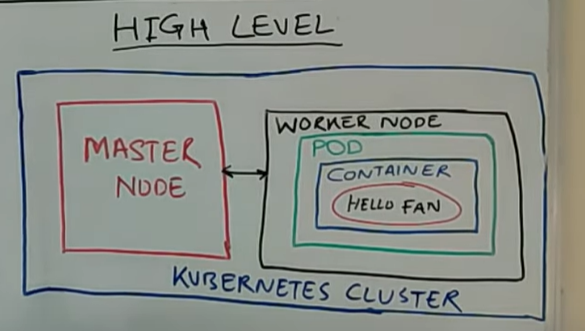 HIGH LEVEL
MASTER
NODE
WORKER NODE
POD
CONTAINER
HELLO FAN
KUBERNETES CLUSTER